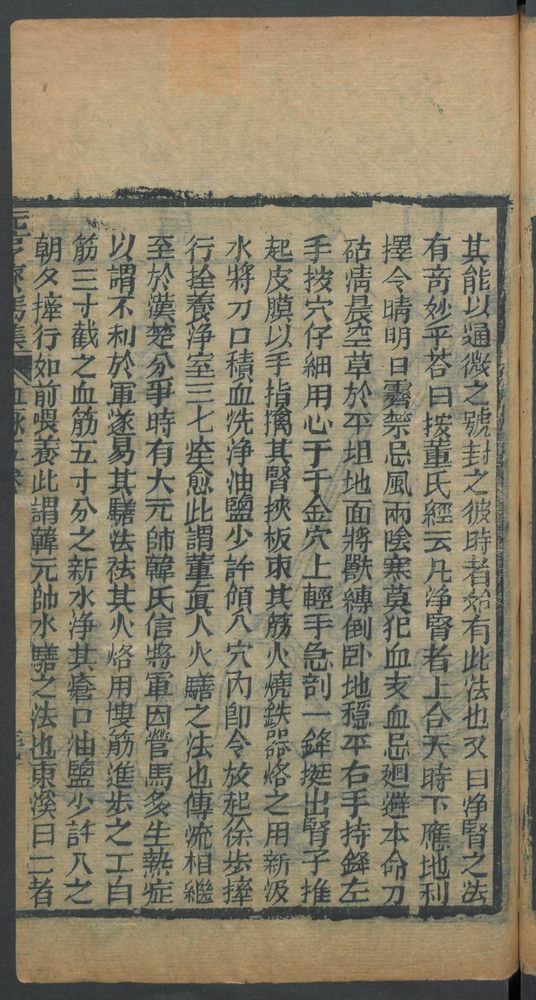 其能以通微之號封之彼時者始有此法也又曰淨腎之法
有奇妙乎荅曰按董氏經云凡淨腎者上合天時下應地利
擇令晴明日霽禁忌風雨陰寒莫犯血支血忌廻避本命刀
砧清晨空草於平坦地面將獸縛倒卧地穩平右手持鋒左
手按穴仔細用心于千金穴上輕手急剖一鋒挺出腎子推
起皮膜以手指擒其腎挾板朿其筋火燒鉄器烙之用新汲
水將刀口積血洗净油鹽少許傾入穴內卽令放起徐步摔
行拴養净室三七痊愈此謂董眞人火騸之法也傳流相繼
至於漢楚分爭時有大元帥韓氏信將軍因營馬多生熱症
以謂不利於軍遂易其騸法祛其火烙用摟筋進步之工白
筋三寸截之血筋五寸分之新水净其瘡口油鹽少許入之
朝夕摔行如前喂養此謂韓元帥水騸之法也東溪曰二者
元亨療馬集 五卷